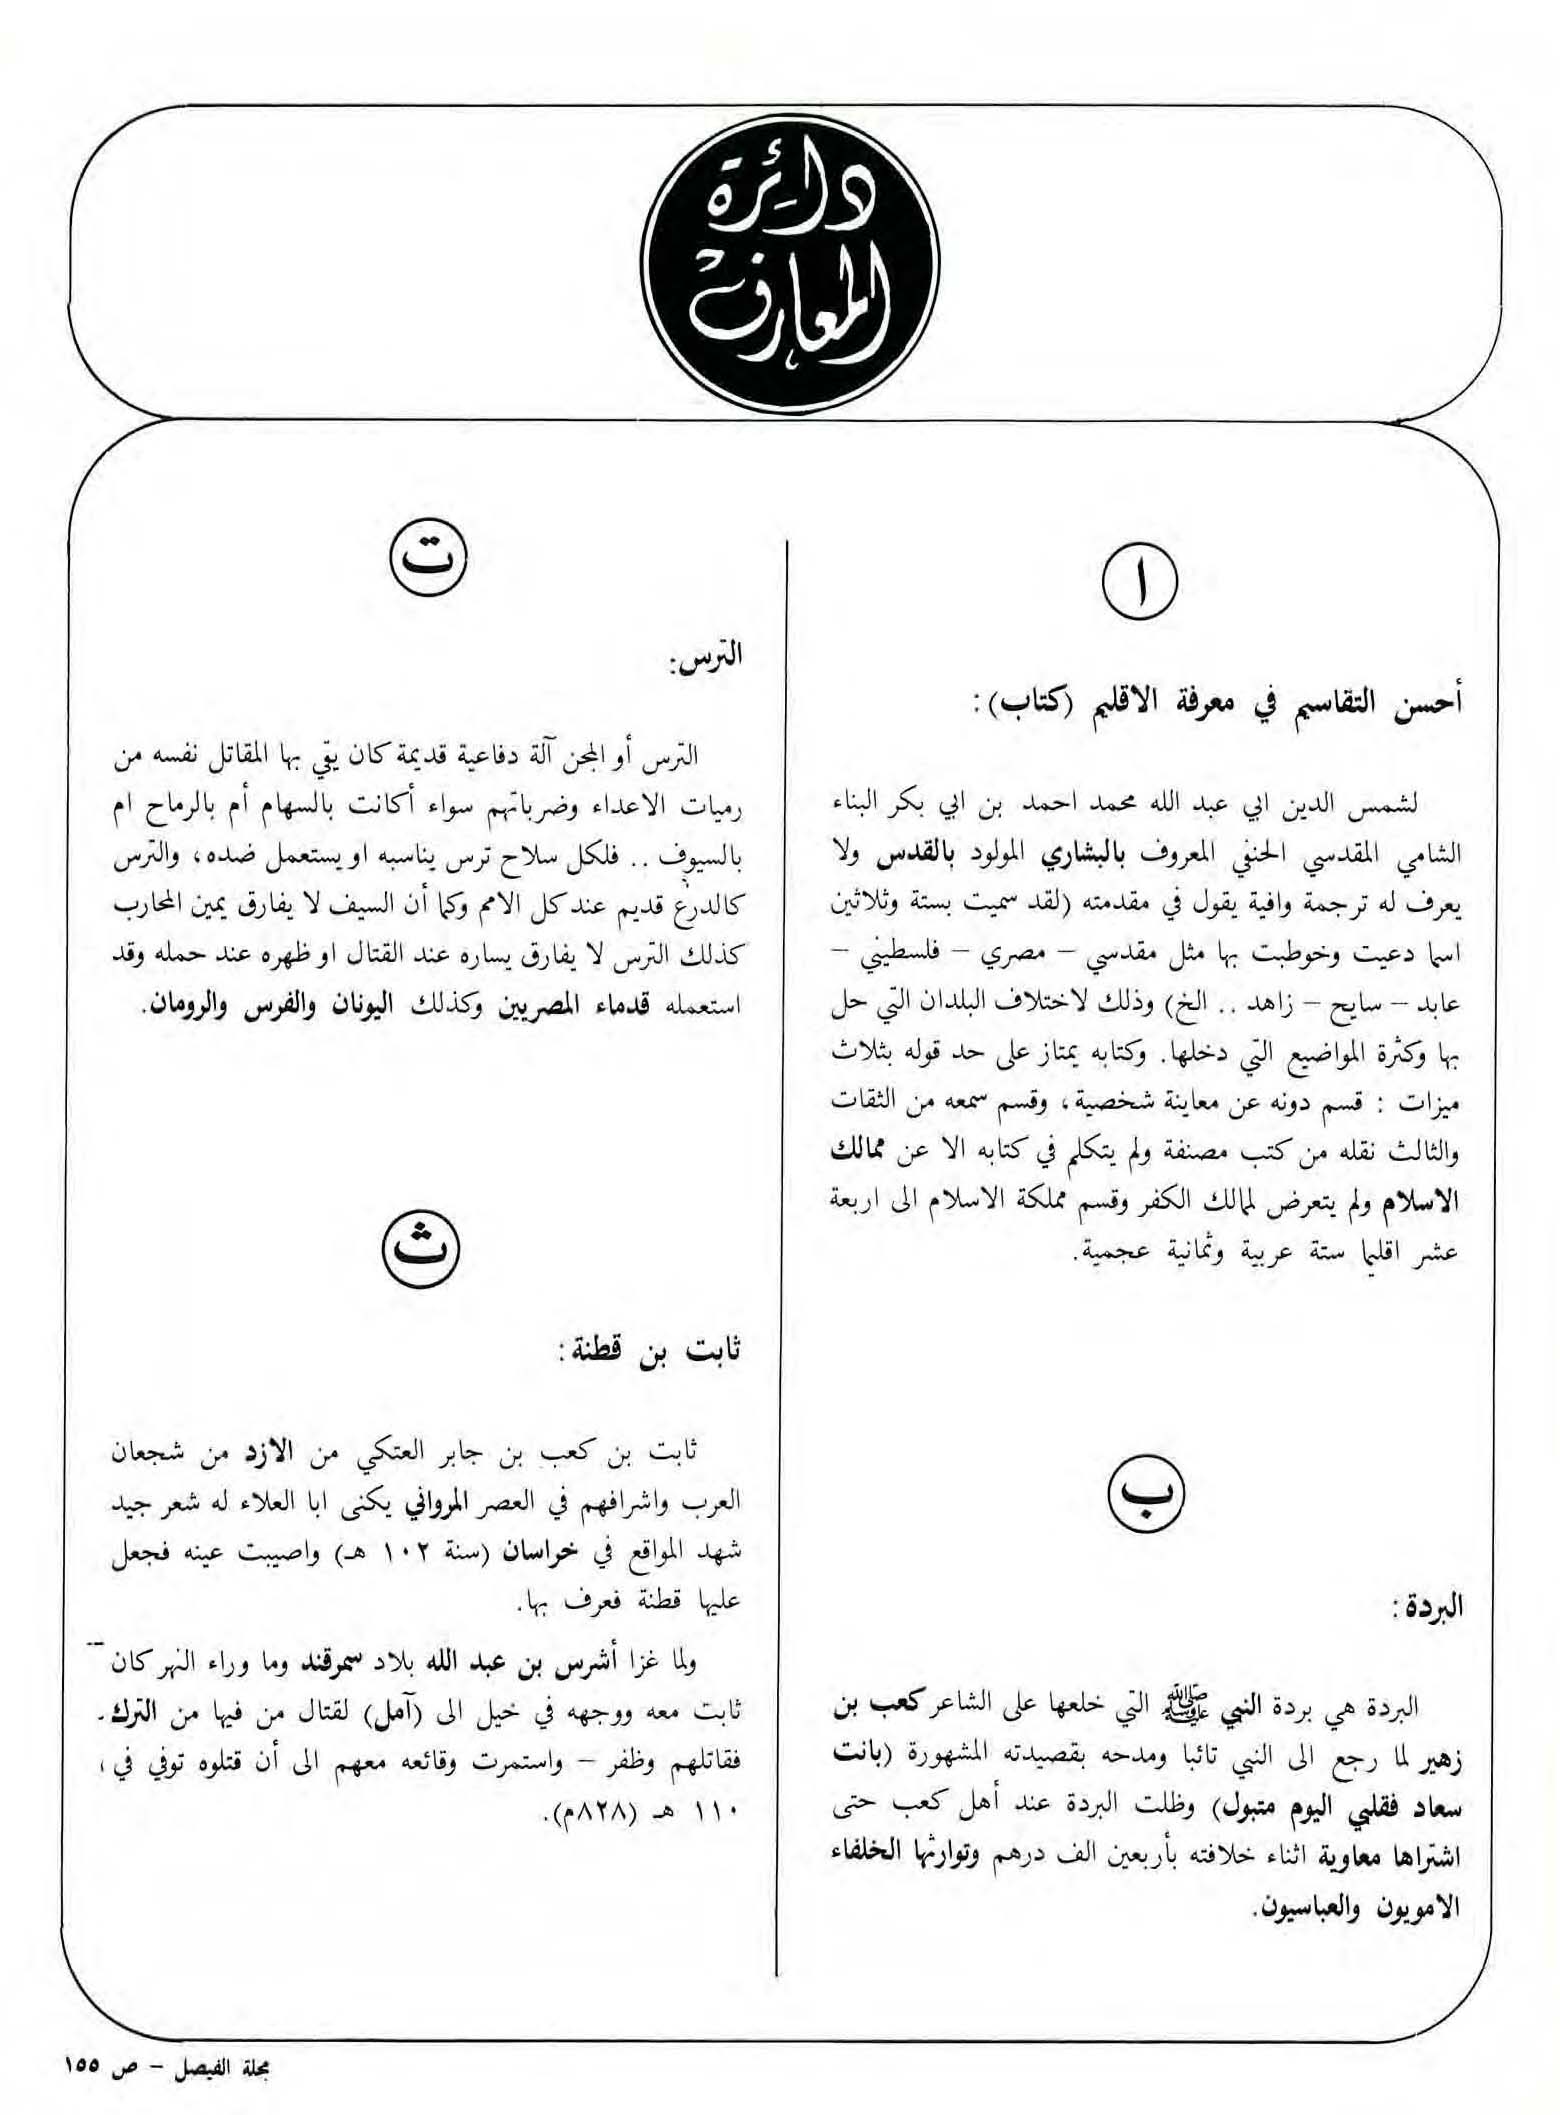 دائرة
المعارف
ا
أحسن التقاسيم في معرفة الاقليم (كتاب):
لشمس الدين ابي عبد الله محمد احمد بن ابي بكر البناء
الشامي المقدسي الحنفي المعروف بالبشاري المولود بالقدس ولا
يعرف له ترجمة وافية يقول في مقدمته (لقد سميت بستة وثلاثين
اسما دعيت وخوطبت بها مثل مقدسي – مصري – فلسطيني –
عابد – سايح – زاهد .. الخ) وذلك لاختلاف البلدان التي حل
بها وكثرة المواضيع التي دخلها. وكتابه يمتاز على حد قوله بثلاث
ميزات : قسم دونه عن معاينة شخصية، وقسم سمعه من الثقات
والثالث نقله من كتب مصنفة ولم يتكلم في كتابه الا عن ممالك
الاسلام ولم يتعرض لمالك الكفر وقسم مملكة الاسلام الى اربعة
عشر اقليما ستة عربية وثمانية عجمية.
ب
البردة:
البردة هي بردة النبي ﷺ التي خلعها على الشاعر كعب بن
زهير لما رجع الى النبي تائبا ومدحه بقصيدته المشهورة (بانت
سعاد فقلبي اليوم متبول) وظلت البردة عند أهل كعب حتى
اشتراها معاوية اثناء خلافته بأربعين الف درهم وتوارثها الخلفاء
الامويون والعباسيون.
ت
الترس:
الترس أو المجن آلة دفاعية قديمة كان يقي بها المقاتل نفسه من
رميات الاعداء وضرباتهم سواء أكانت بالسهام أم بالرماح ام
بالسيوف .. فلكل سلاح ترس يناسبه او يستعمل ضده، والترس
كالدرع قديم عند كل الامم وكما أن السيف لا يفارق يمين المحارب
كذلك الترس لا يفارق يساره عند القتال او ظهره عند حمله وقد
استعمله قدماء المصريين وكذلك اليونان والفرس والرومان.
ث
ثابت بن قطنة:
ثابت بن كعب بن جابر العتكي من الازد من شجعان
العرب واشرافهم في العصر المرواني يكنى ابا العلاء له شعر جيد
شهد المواقع في خراسان (سنة ١٠٢ هـ) واصيبت عينه فجعل
عليها قطنة فعرف بها.
ولما غزا أشرس بن عبد الله بلاد سمرقند وما وراء النهر كان
ثابت معه ووجهه في خيل الى (آمل) لقتال من فيها من الترك.
فقاتلهم وظفر – واستمرت وقائعه معهم الى أن قتلوه توفي في،
١١٠ هـ (٨٢٨م).
مجلة الفيصل – ص ١٥٥